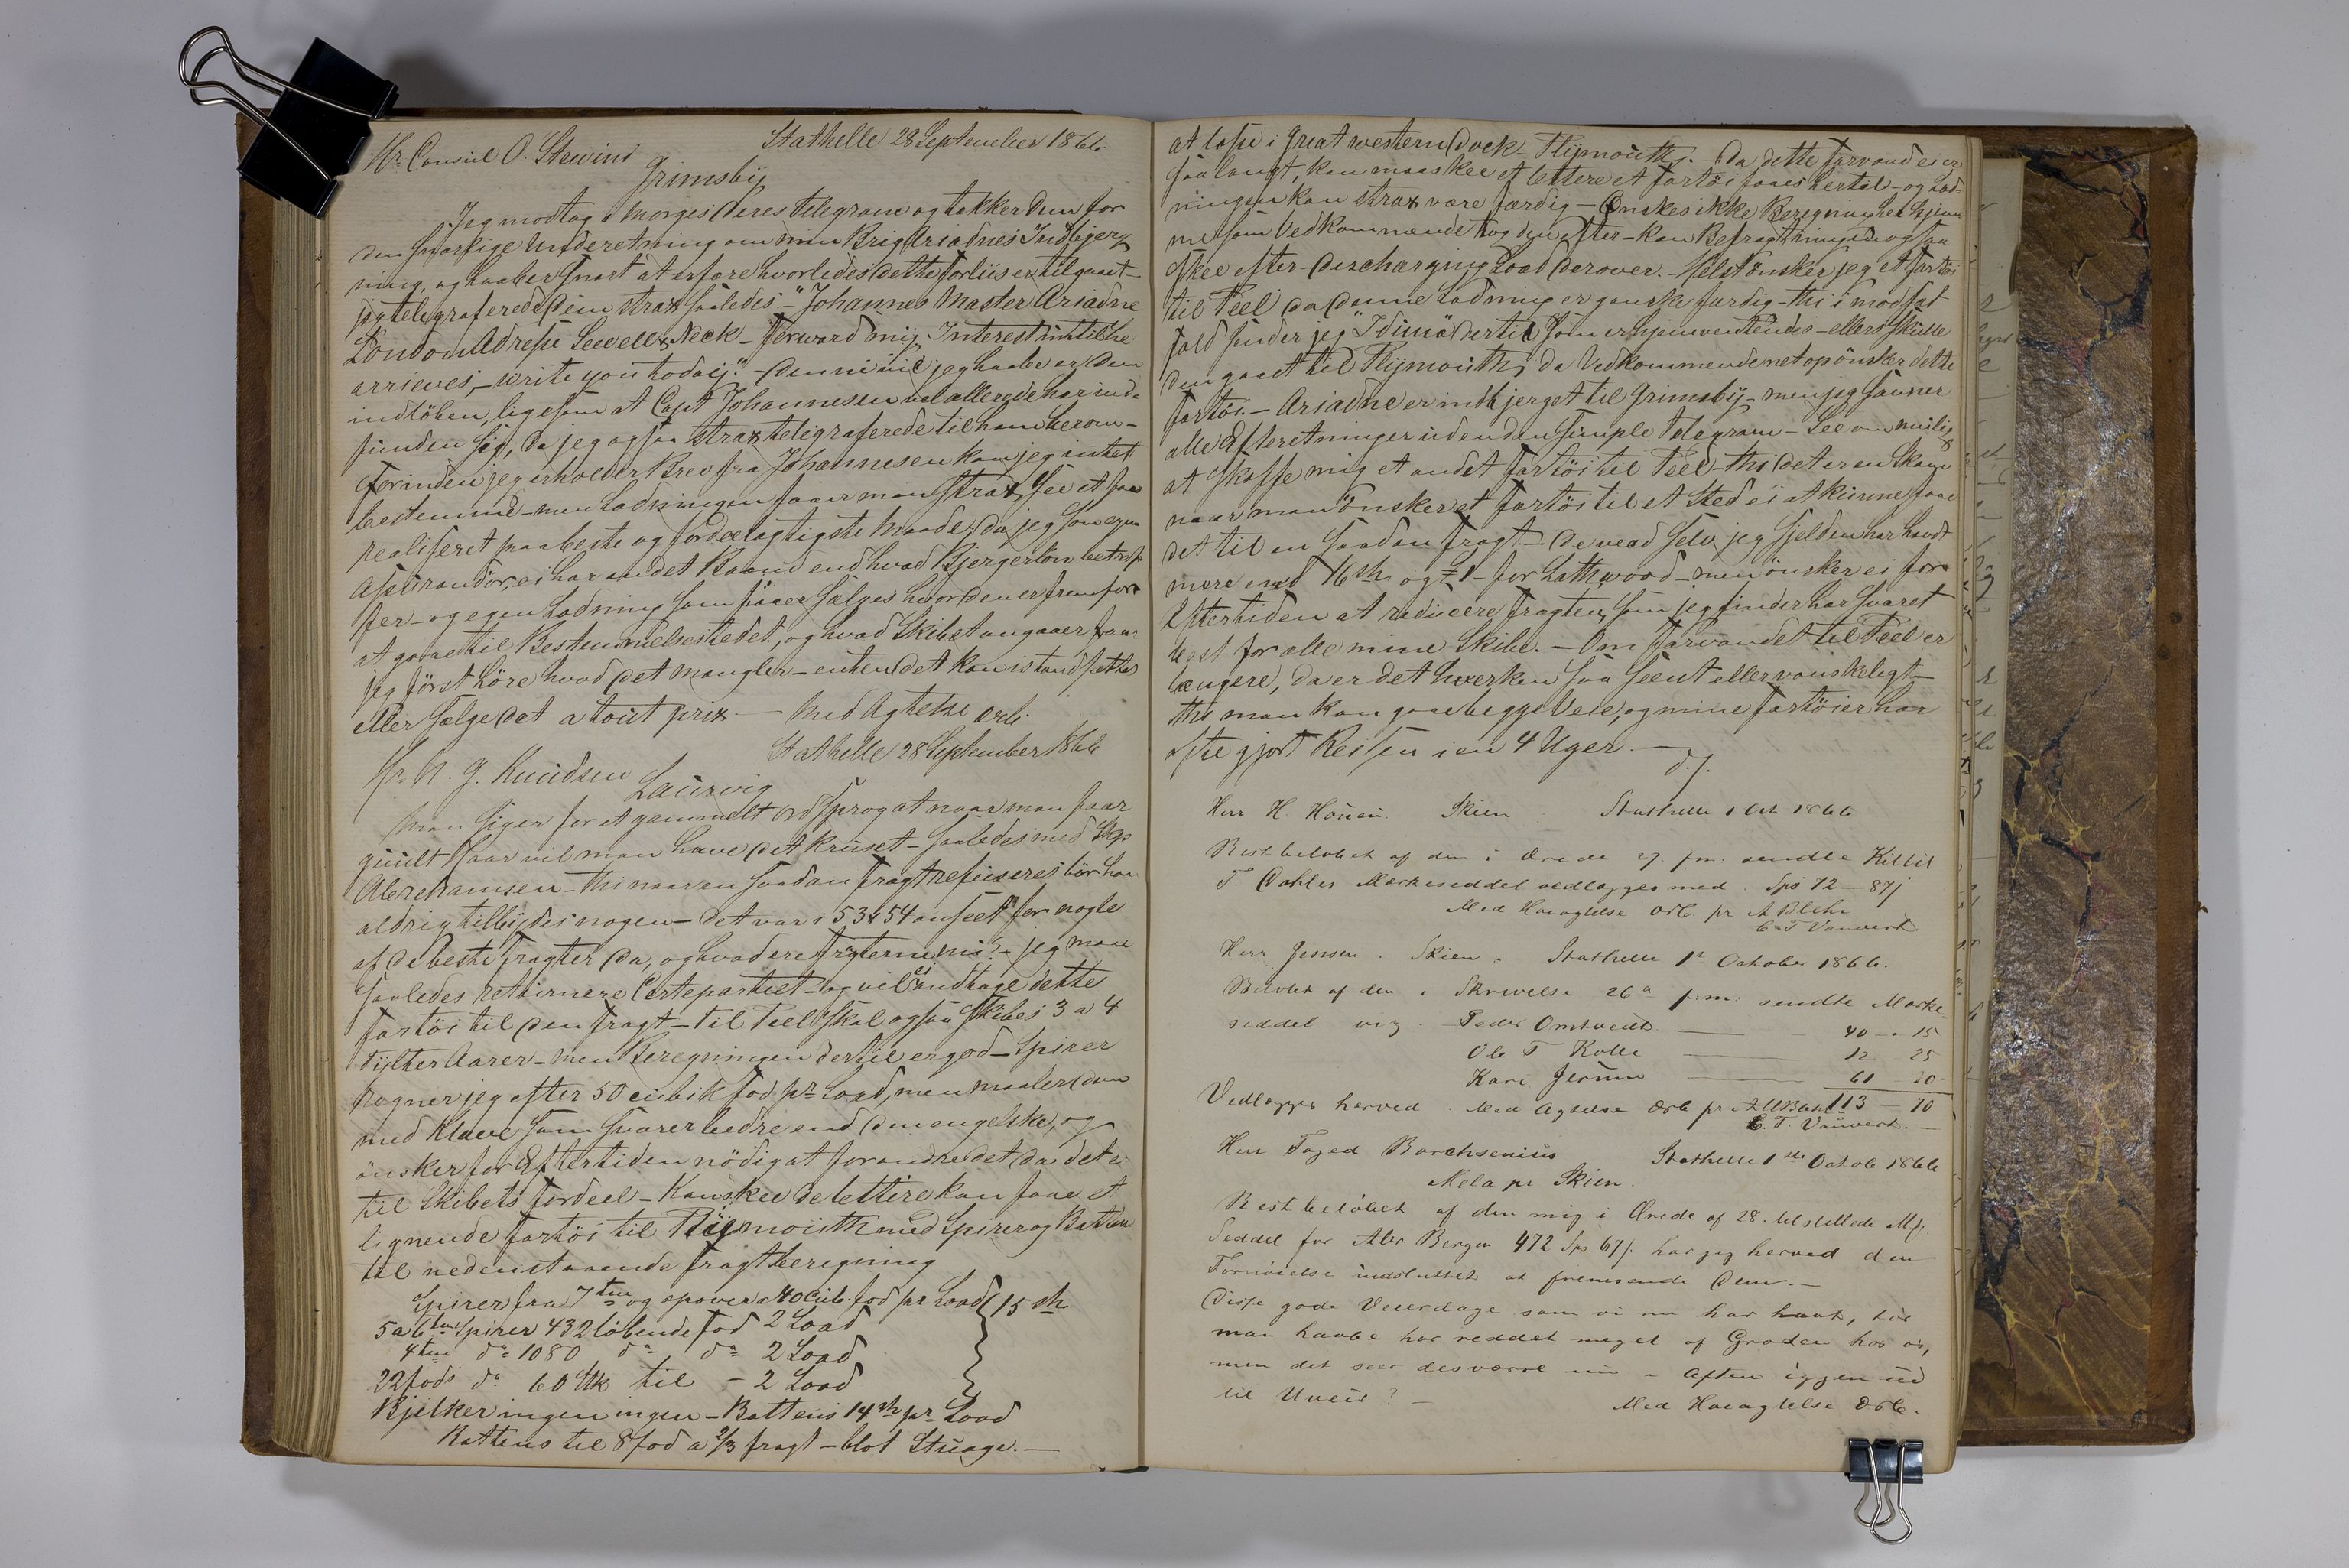 Stathelle 28 September 1866
Hr. Consul O. Stewini
Grimsby
Jeg modtog i Morges Deres Telegram og takker Dem for
den snarlige Underetning om min Brig Ariadnes Indbjerg-
ning, og haaber snart at erfare hvorledes dette Forliis er tilgaaet -
jeg telegraferede Dem strax saaledes - "Johannes Master Ariadne
London Adresse Sewell & Neck - forward my Interest until he
arrieves, - write you today." - jeg haaber er Dem
indløben, ligesom at Capt Johannesen vel allerede har ind-
funden sig, da jeg ogsaa strax telegraferede til ham herom -
Forinden jeg erholder Brev fra Johannesen kan jeg intet
bestemme - men Ladningen faaer man strax see at faa
realiseret paa beste og fordeelagtigste Maade, da jeg som egen
Assurandør, ei har andet Baand end hvad Bjergerløn betref-
fer - og egen Ladning som sælges hvor den er frem for
at gaae til Bestemmelsesstedet, og hvad Skibet angaaer faaer
jeg først høre hvad det mangler - enten det kan istandsættes
eller sælge det a tout prix - Med Agtelse ærb.
Stathelle 28 September 1866
Hr. N. G. Knudsen
Laurvig
Man siger for et gammelt Ordsprog at naar man faar
guult faar vil man have det kruset - saaledes med Skp
Abrahamsen - thi naar en saadan Fragt refuseres bør han
aldrig tilbydes nogen - det var i 53 & 54 anseet for nogle
af de beste Fragter da, og hvad ere Fragterne nu? - jeg maae
saaledes retournere Certepartiet - og vil ei modtage dette
Fartøi til den Fragt - til Teel skal ogsaa skibes 3 a 4
tylter Aarer - men Beregningen dertil er god - Spirer
regner jeg efter 50 cubik fod pr Load, men maaler dem
med Klave som svarer bedre end den engelske, og
ønsker for Eftertiden nødig at forandre det da det er
til Skibets Fordeel - Kanskee De lettere kan faae et
lignende Fartøi til Plymouth med Spirer og Battens
til nedenstaaende Fragtberegning
Spirer fra 7 tm og opover a 40 Cub. fod pr Load 15 sh
5 a 6 tm Spirer 432 løbende fod 2 Load
4 tm do 1080 do do 2 Load
22 fods do 60 Stk til - 2 Load
Bjelker ingen ingen - Battens 14 sh pr Load
Battens til 8 fod a 2/3 fragt - blot Stuage. -
at losse i Great western Dock - Plymouth. - Da dette Farvand ei er
saa langt, kan maaskee et lettere et Fartøi faaes hertil - og Lad-
ningen kan strax være færdig - Ønskes ikke Beregning her hjem-
me som Vedkommende tog den efter - kan Befragtningen ogsaa
skee efter Discharging Load derover. - Helst ønsker jeg et Fartøi
til Teel da denne Ladning er ganske færdig - thi i modsat
fald sender jeg "Iduna" dertil som er hjemventendes - ellers skulle
den gaaet til Plymouth, da Vedkommende netop ønsker dette
Fartøi. - Ariadne er indbjerget til Grimsby - men jeg savner
alle Efterretninger uden den simple Telegram - See om mulig
at skaffe mig et andet Fartøi til Teel - thi det er en Skam
naar man ønsker et Fartøi til et Sted ei at kunne faae
det til en saadan Fragt. - De veed selv jeg sjelden har havt
mere end 16 sh og £ 1 - for Lathwood - men ønsker ei for
Eftertiden at reducere Fragten, som jeg finder har svaret
best for alle mine Skibe. - Om Farvandet til Teel er
længere, da er det hverken saa seent eller vanskeligt -
thi man kan gaae begge Veie, og mine Fartøier har
ofte gjort Reisen i en 4 Uger. -
d. S.
Herr H Houen. Skien Stathelle 1 Oct 1866
Restbeløbet af den i Ærede 27. f.m. sendte
T. Dahler Markeseddel vedlægges med Spd 72 - 87 s
Med Høiagtelse ærb. pr A Blehr
C. T. Vauvert
Herr Jensen . Skien . Stathelle 1e October 1866.
Beløbet af den i Skrivelse 26e f.m. sendte Marke-
seddel viz. Peder Omtvedt - 40 - 15
Ole T Kolle - 12 25
Kari Jerum - 61 30
Vedlægges herved . Med Agtelse ærb pr A Blehr 113 - 70
C. T. Vauvert. -
Herr Foged Borchsenius Stathelle 1ste Octob 1866
Mela pr Skien.
Restbeløbet af den mig i Ærede af 28. tilstillede M/
Seddel for Abr Bergen 472 Sps 67 s. har jeg herved den
Fornøielse indsluttet at fremsende Dem. -
Disse gode Veierdage som vi nu har havt, tør
man haabe har reddet meget af Grøden hos os,
men det seer desværre nu i Aften iggjen ud
til Uveir? - Med Høiagtelse ærb.